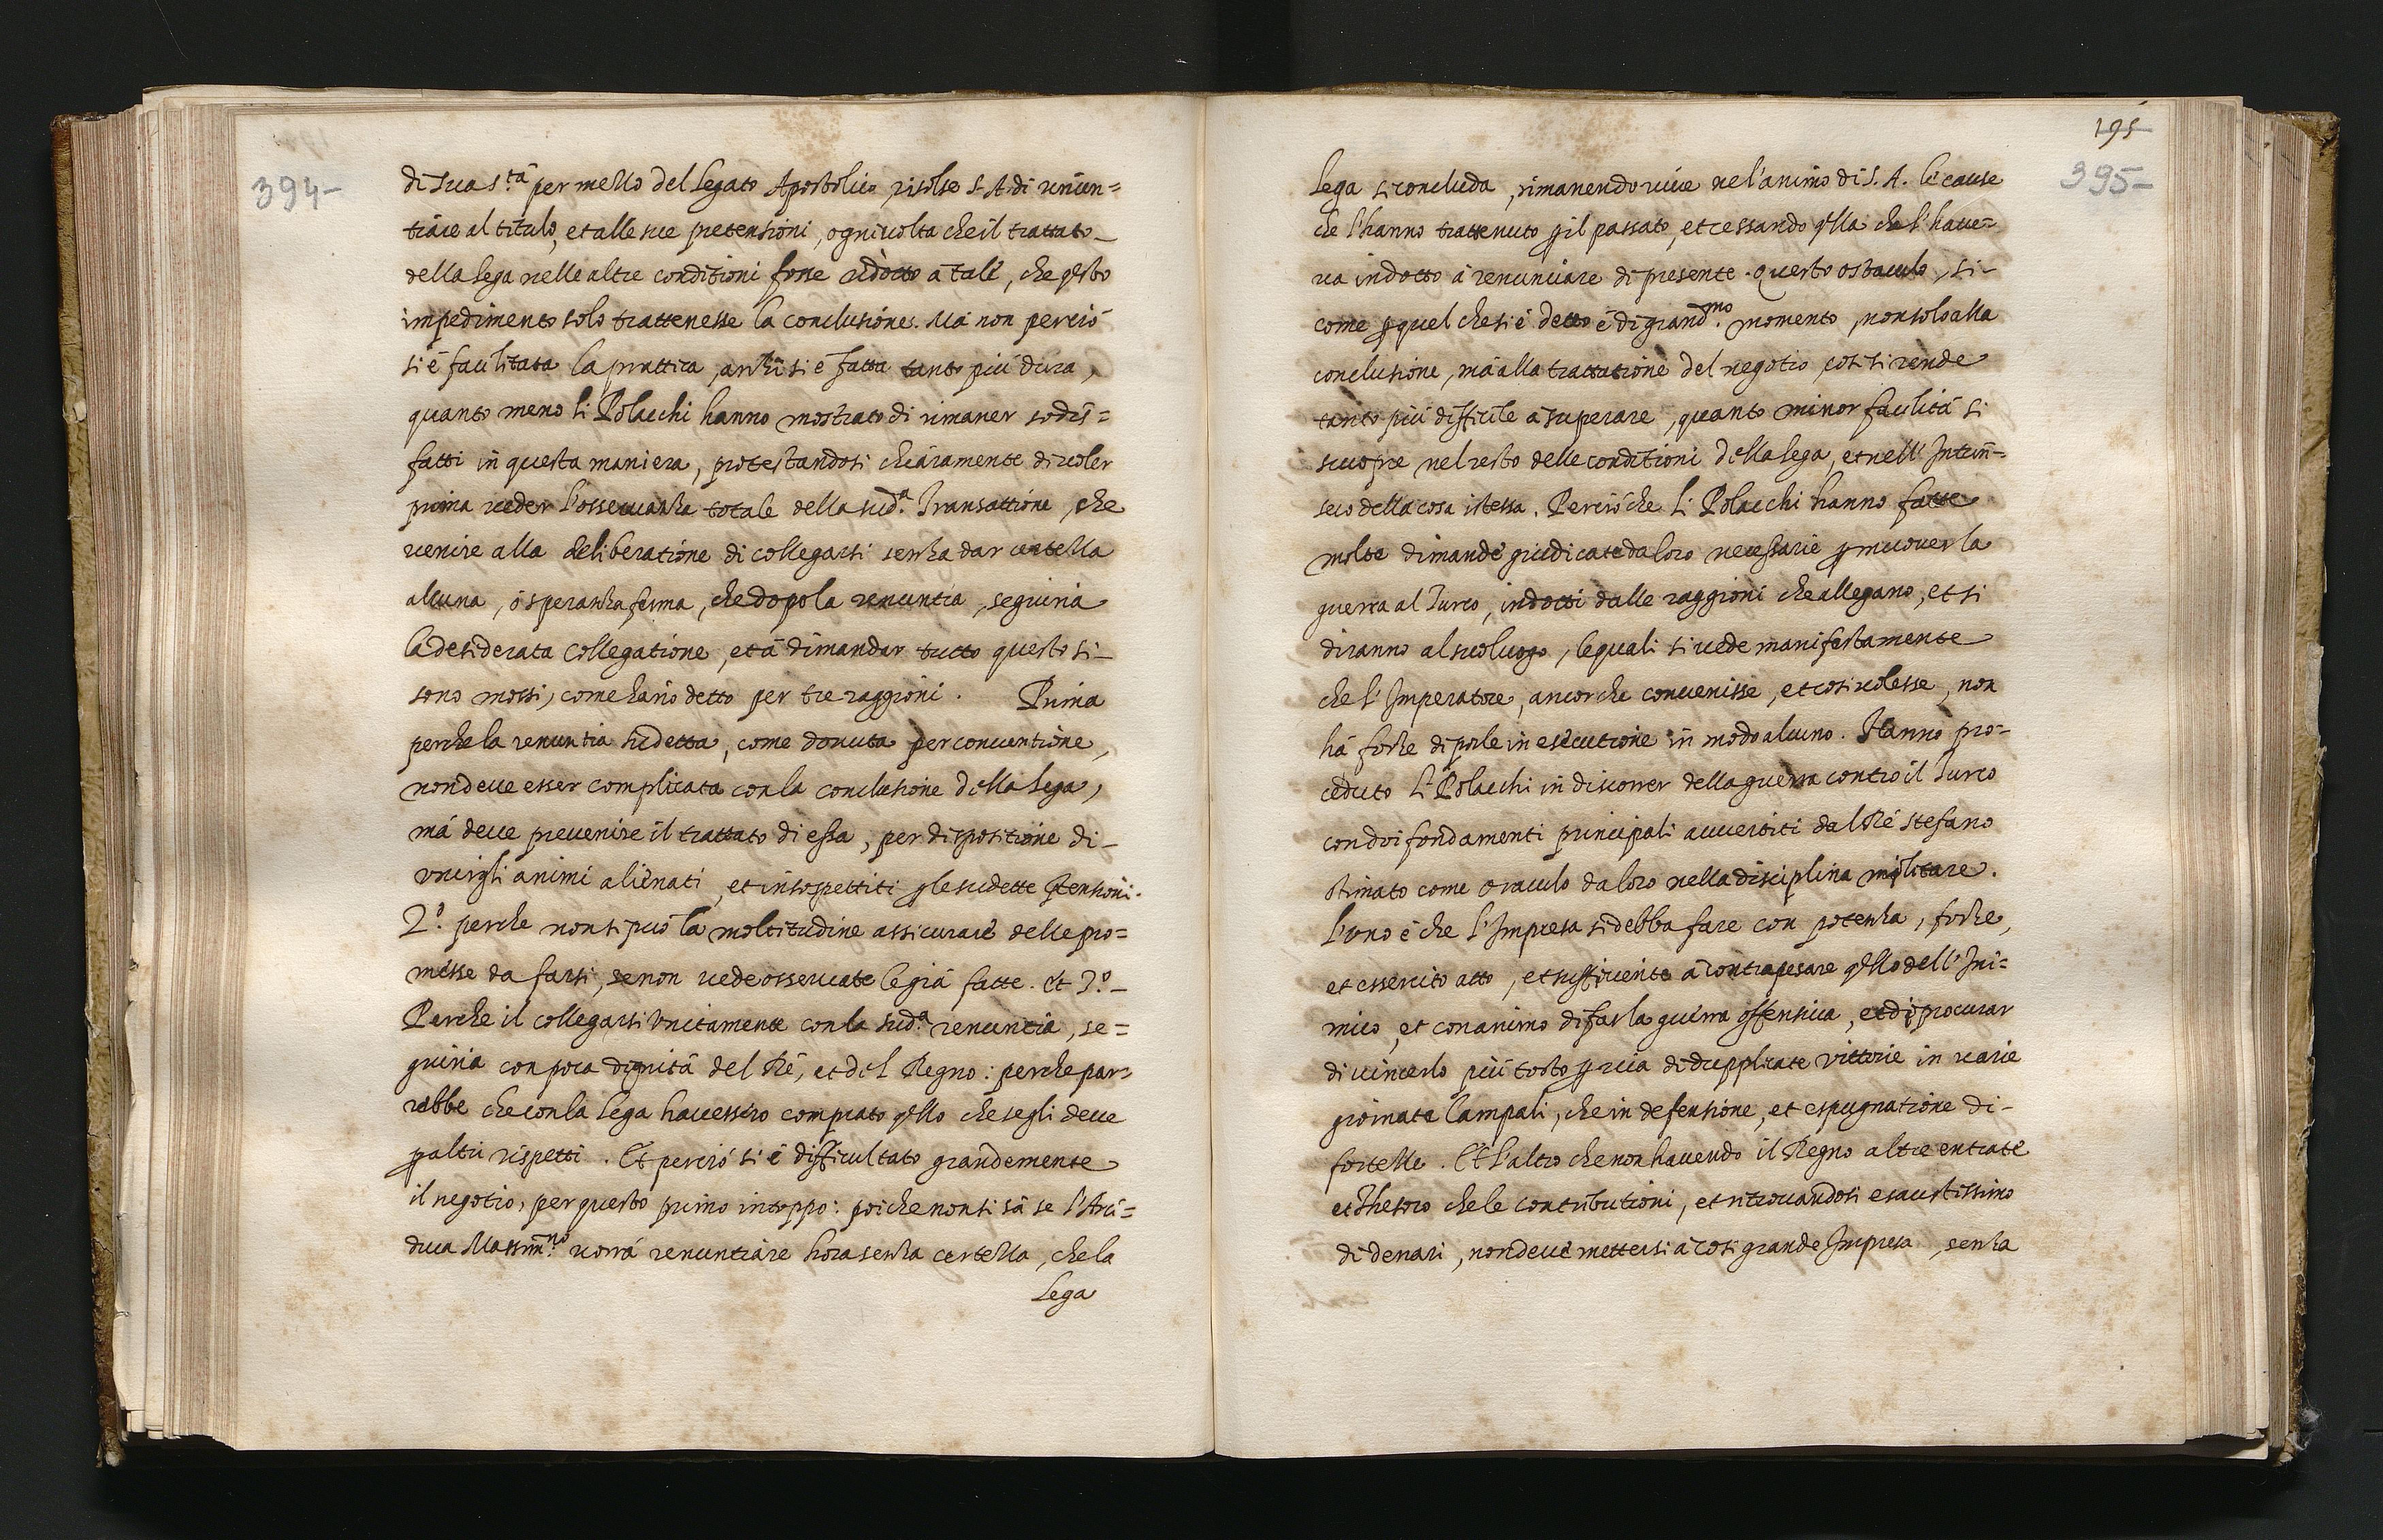 394-
di sua S.tà per mezzo del Legato Apostolico, risolse S. A. di renun=
tiare al titulo, et alle sue pretensioni, ogni volta che il trattato
della lega nelle altre conditioni fosse ridotto à tale, che qsto
impedimento solo trattenesse la conclusione. Mà non perciò
si è facilitata la prattica, anzi si è fatta tanto più dura,
quanto meno li Polacchi hanno mostrato di rimaner sodis=
fatti in questa maniera, protestandosi chiaramente di voler
prima veder l'osservanza totale della sud.a Transattione, che
venire alla deliberatione di collegarsi senza dar certezza
alcuna, ò speranza ferma, che dopo la renuntia, seguiria
la desiderata collegatione, et à dimandar tutto questo si
sono mossi, come hano detto per tre raggioni. Prima
perche la renuntia sudetta, come dovuta per conventione,
non deve esser complicata con la conclusione della lega,
mà deve prevenire il trattato di essa, per dispositione di
unir gli animi alienati, et insospettiti p le sudette ptensioni.
2.o perche non si può la moltitudine assicurare delle pro=
messe da farsi, se non vede osservate le già fatte. Et 3.o
Perche il collegarsi unitamente con la sud.a renuntia, se=
guiria con poca dignità del Rè, et del Regno: perche par=
rebbe che con la lega havessero comprato qllo che se gli deve
p altri rispetti. Et perciò si è difficultato grandemente
il negotio, per questo primo intoppo: poiche non si sà se l'Arci=
duca Massim.no vorrà renuntiare hora senza certezza, che la
Lega
195
395-
Lega si concluda, rimanendo vive nel'animo di S. A. le cause
che l'hanno trattenuto p il passato, et cessando qlla che l'have=
va indotto à renunciare di presente. Questo ostaculo, si-
come p quel che si è detto è di grand.mo momento, non solo alla
conclusione, mà alla trattatione del negotio, così si rende
tanto più difficile à superare, quanto minor facilità si
scuopre nel resto delle conditioni della lega, et nell'Intrin=
seco della cosa istessa. Perciò che li Polacchi hanno fatte
molte dimande giudicate da loro necessarie p muover la
guerra al Turco, indotti dalle raggioni che allegano, et si
diranno al suo luogo, le quali si vede manifestamente
che l'Imperatore, ancor che convenisse, et così volesse, non
hà forze di porle in esecutione in modo alcuno. Hanno pro=
ceduto li Polacchi in discorrer della guerra contro il Turco
con doi fondamenti principali avvertiti dal Rè Stefano
stimato come oraculo da loro nella disciplina militare.
L'uno è che l'Impresa si debba fare con potenza, forze,
et essercito atto, et sufficiente à contrapesare qllo dell'Ini=
mico, et con animo di far la guerra offensiva, et di procurar
di vincerlo più tosto p via di dupplicate vittorie in varie
giornate Campali, che in defensione, et espugnatione di-
fortezze. Et l'altro che non havendo il Regno altre entrate
et Thesoro che le contributioni, et ritrovandosi esaustissimo
di denari, non deve mettersi à così grande Impresa, senza